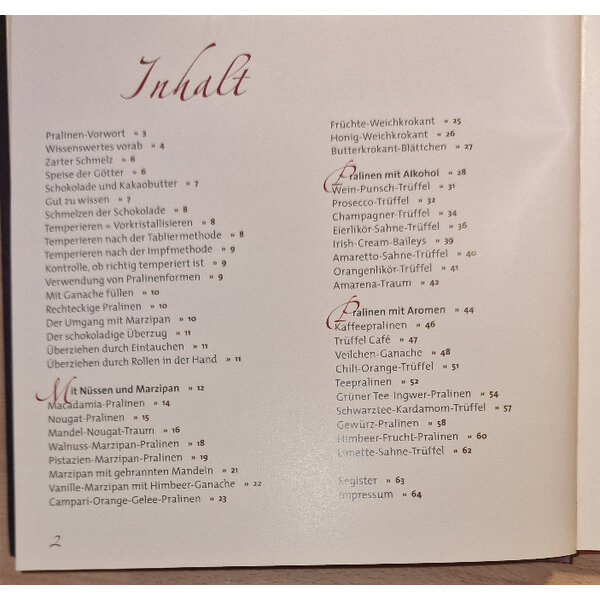 Inhalt
Pralinen-Vorwort » 3
Wissenswertes vorab » 4
Zarter Schmelz » 6
Speise der Götter » 6
Schokolade und Kakaobutter » 7
Gut zu wissen » 7
Schmelzen der Schokolade » 8
Temperieren = Vorkristallisieren » 8
Temperieren nach der Tabliermethode » 8
Temperieren nach der Impfmethode » 9
Kontrolle, ob richtig temperiert ist » 9
Verwendung von Pralinenformen » 9
Mit Ganache füllen » 10
Rechteckige Pralinen » 10
Der Umgang mit Marzipan » 10
Der schokoladige Überzug » 11
Überziehen durch Eintauchen » 11
Überziehen durch Rollen in der Hand » 11
Mit Nüssen und Marzipan » 12
Macadamia-Pralinen » 14
Nougat-Pralinen » 15
Mandel-Nougat-Traum » 16
Walnuss-Marzipan-Pralinen » 18
Pistazien-Marzipan-Pralinen » 19
Marzipan mit gebrannten Mandeln » 21
Vanille-Marzipan mit Himbeer-Ganache » 22
Campari-Orange-Gelee-Pralinen » 23
Früchte-Weichkrokant » 25
Honig-Weichkrokant » 26
Butterkrokant-Blättchen » 27
Pralinen mit Alkohol » 28
Wein-Punsch-Trüffel » 31
Prosecco-Trüffel » 32
Champagner-Trüffel » 34
Eierlikör-Sahne-Trüffel » 36
Irish-Cream-Baileys » 39
Amaretto-Sahne-Trüffel » 40
Orangenlikör-Trüffel » 41
Amarena-Traum » 42
Pralinen mit Aromen » 44
Kaffeepralinen » 46
Trüffel Café » 47
Veilchen-Ganache » 48
Chili-Orange-Trüffel » 51
Teepralinen » 52
Grüner Tee-Ingwer-Pralinen » 54
Schwarztee-Kardamom-Trüffel » 57
Gewürz-Pralinen » 58
Himbeer-Frucht-Pralinen » 60
Limette-Sahne-Trüffel » 62
Register » 63
Impressum » 64
2